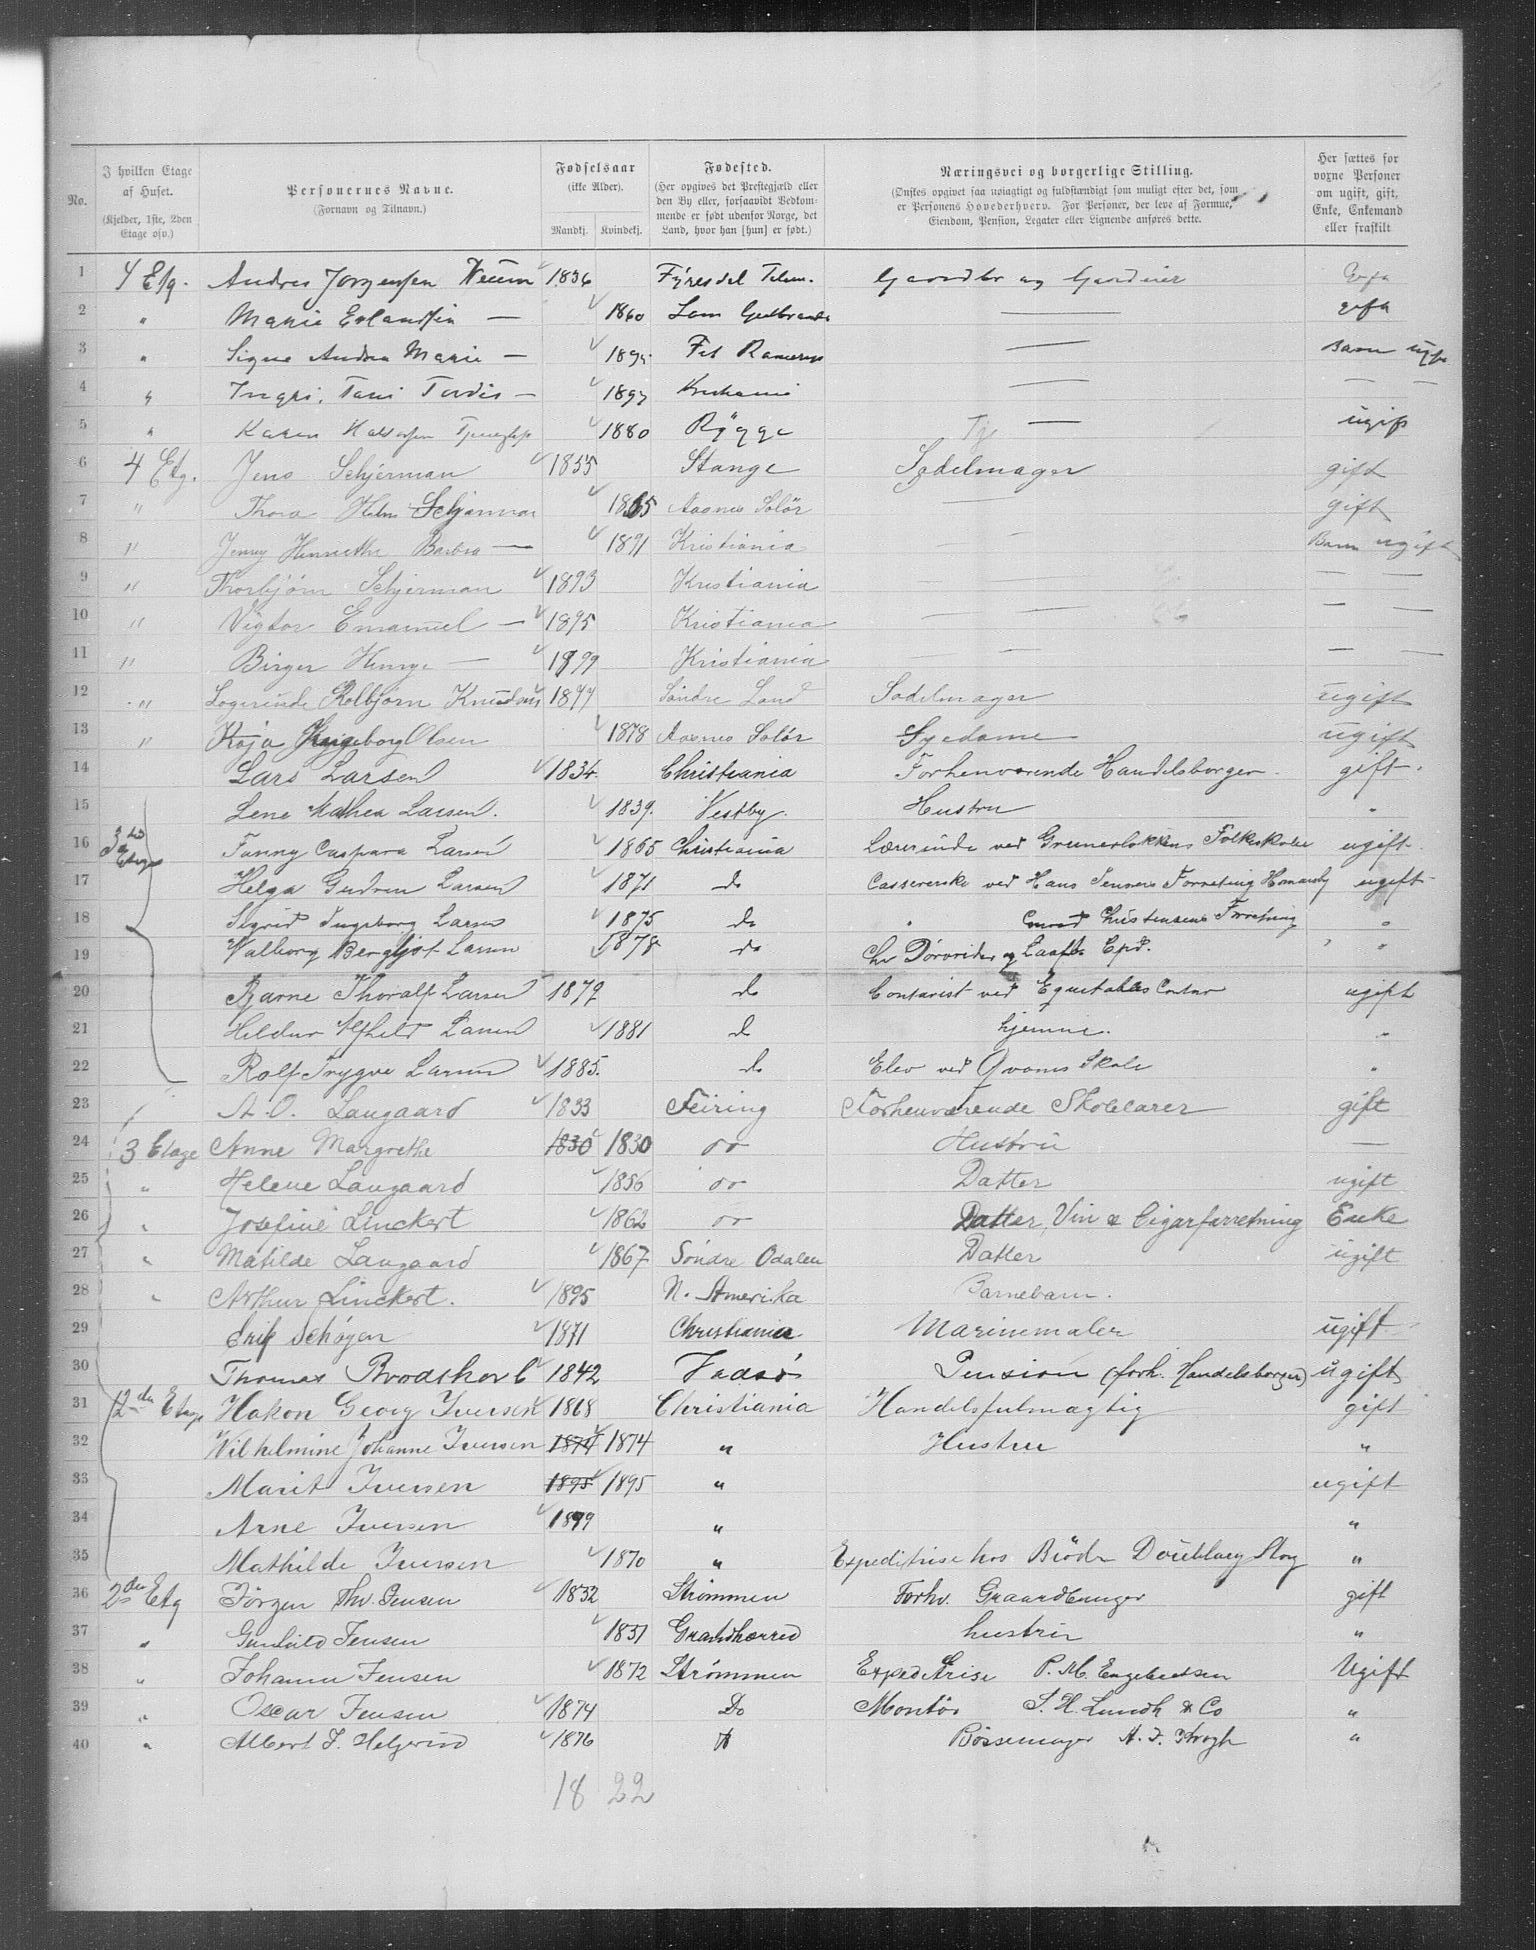 No.
I hvilken Etage af Huset.
(Kjelder, 1ste, 2den Etage osv.)
Personernes Navne.
(Fornavn og Tilnavn.)
Fødselsaar
(ikke Alder).
Mandkj. Kvindekj.
Fødested.
(Her opgives det Prestegjæld eller den By eller, forsaavidt Vedkommende er født udenfor Norge, det Land, hvor han [hun] er født.)
Næringsvei og borgerlige Stilling.
(Ønskes opgivet saa nøiagtigt og fuldstændigt som muligt efter det, som er Personens Hovederhverv. For Personer, der leve af Formue, Eiendom, Pension, Legater eller Lignende anføres dette.
Her sættes for voxne Personer om ugift, gift, Enke, Enkemand eller fraskilt
1 4 Etg. Andres Jorgensen 1836 Fyresdal Telem. og
2 " Marie Erlandsen — 1860 Lom —
3 " Signe Andrea Marie — 1895 Fet — Barn ugift
4 " — 1897 — — —
5 " Karen Halvorsen 1880 Rygge — ugift
6 4 Etg. Jens Schjerman 1855 Stange Sadelmager gift
7 " Thora Schjerman 1865 Aasnes Solør — gift
8 " Jenny Henriette Barbra — 1891 Kristiania — — Barn ugift
9 " Thorbjørn Schjerman 1893 Kristiania — —
10 " Vigtor Emanuel — 1895 Kristiania — — — —
11 " Birger — 1899 Kristiania — — — —
12 " Logerende Kolbjørn Knudsen 1877 Søndre Land Sadelmager ugift
13 " Kaja Ingeborg Olsen 1878 Aasnes Solør Syedame ugift
14 Lars Larsen 1834 Christiania Forhenværende Handelsborger gift
15 Lene Mathea Larsen. 1839. Vestby. Hustru "
16 3die Etage Fanny Caspara Larsen 1865 Christiania Lærerinde ved Grunerløkkens Folkeskole ugift
17 Helga Gudrun Larsen 1871 do Cassererske ved Hans Jensens Forretning Homansby ugift
18 Sigrid Ingeborg Larsen 1875 do " Christensens Forretning "
19 Valborg Bergljot Larsen 1878 do "
20 Bjarne Thoralf Larsen 1879 do Contorist ved Equitables Contor ugift
21 Hildur Alfhild Larsen 1881 do hjemme. "
22 Rolf Trygve Larsen 1885. do Elev ved Qvams Skole "
23 A. O. Laugaard 1833 Feiring Forhenværende Skolelærer gift
24 3 Etage Anne Margrethe 1830 1830 do Hustru —
25 " Helene Laugaard 1856 do Datter ugift
26 " Josefine Linckert 1862 do Datter, Vin & Cigarforretning Enke
27 " Matilde Laugaard 1867 Søndre Odalen Datter ugift
28 " Arthur Linckert. 1895 N. Amerika Barnebarn.
29 Erik Schøyen 1871 Christiania Marinemaler ugift
30 Thomas Brodtkorb 1842 Vadsø Pension (forh. Handelsborger) ugift
31 2den Etage Hakon Georg Iversen 1868 Christiania Handelsfulmægtig gift
32 Wilhelmine Johanne Iversen 1874 1874 " Hustru "
33 Marit Iversen 1895 1895 " ugift
34 Arne Iversen 1899 " "
35 Mathilde Iversen 1870 " Expeditrise hos Brødr "
36 2den Etg Jørgen Thv. Jensen 1832 Strømmen Forhv. gift
37 " Gunhild Jensen 1831 hustru "
38 " Johanne Jensen 1872 Strømmen Expeditrise P. M. Engebretsen Ugift
39 " Oscar Jensen 1874 Do Montør S. H. Lundh & Co "
40 " Albert J. Helgerud 1876 Do Bøssemager H. J. Krogh "
18 22